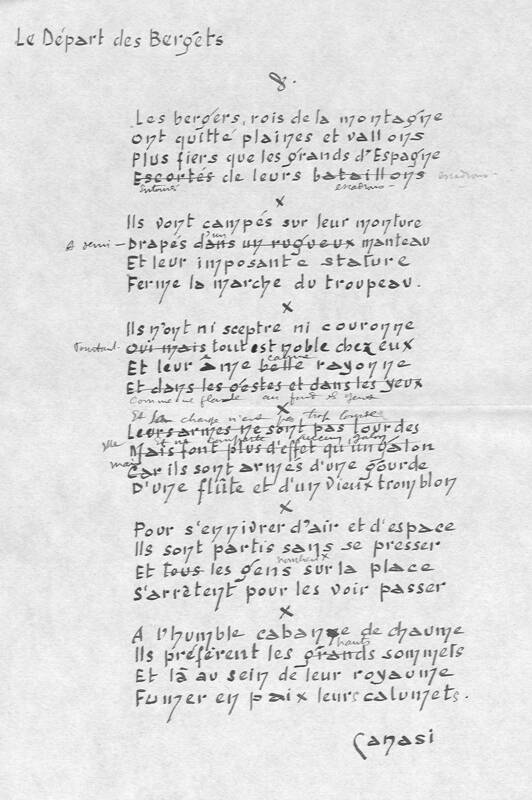 Le Départ des Bergers
Les bergers, rois de la montagne
Ont quitté plaines et vallons
Plus fiers que les grands d'Espagne
Escortés de leurs bataillons escadrons
Entourés escadrons
x
Ils vont campés sur leur monture
d'un
A demi - Drapés dans un rugueux manteau
Et leur imposante stature
Ferme la marche du troupeau.
x
Ils n'ont ni sceptre ni couronne
Pourtant Qui mais tout est noble chez eux
calme
Et leur âme belle rayonne
Et dans les gestes et dans les yeux
Comme une flamme au fond des yeux
x
Et leur charge n'est pas trop lourde
Leurs armes ne sont pas lourdes
Elle et ne comporte aucun galon
Mais font plus d'effet qu'un galon
mais
Car ils sont armés d'une gourde
D'une flûte et d'un vieux tromblon
x
Pour s'ennivrer d'air et d'espace
Ils sont partis sans se presser
nombreux
Et tous les gens sur la place
S'arrêtent pour les voir passer
x
A l'humble cabane de chaume
hauts
Ils préfèrent les grands sommets
Et là au sein de leur royaume
Fumer en paix leurs calumets.
Canasi